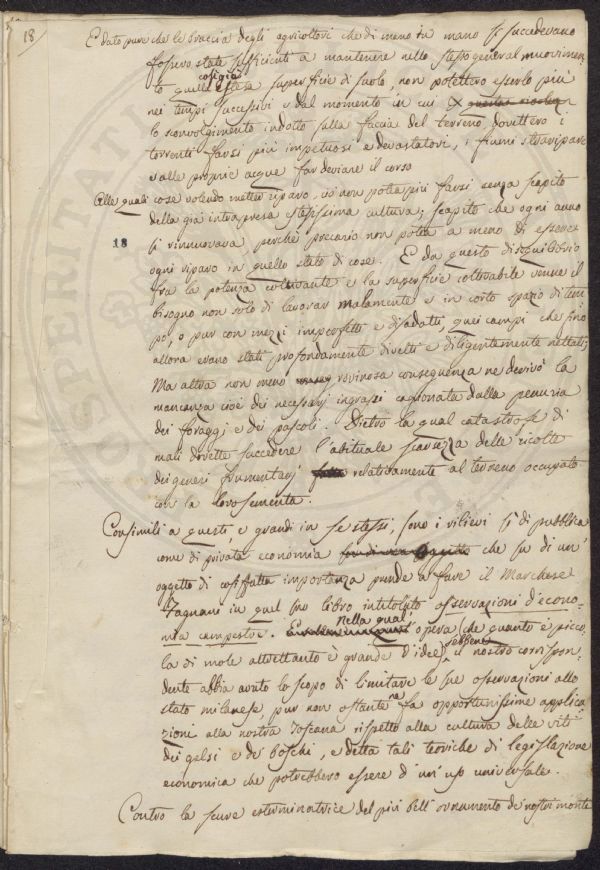 18
E dato pure che le braccia degli agricoltori che di meno in mano si succedevano
fossero state sufficienti a mantenere nello stesso general muovimen
to quella cosigià estesa superficie di suolo, non potettero esserlo più
nei tempi successivi e dal momento in cui
lo sconvolgimento indotto sulla faccia del terreno dovettero i
torrenti farsi più impetuosi e devastatori, i fiumi straripare
e alle proprie acque far deviare il corso
Alle quali cose volendo metter riparo, ciò non potea più farsi senza scapito
della già intrapresa estesissima cultura; scapito che ogni anno
18
si rinnuovava perchè precario non potea a meno di essere
ogni riparo in quello stato di cose. E da questo disequilibrio
fra la potenza coltivante e la superficie coltivabile venne il
bisogno non solo di lavorar malamente e in corto spazio di tem
po, o pur con mezzi imperfetti e disadatti, quei campi che fino
allora erano stati profondamente divelti e diligentemente nettati;
Ma altra non meno rovinosa conseguenza ne derivò la
mancanza cioè dei necessarj ingrassi cagionata dalla penuria
dei foraggi e dei pascoli. Dietro la qual catastrofe di
mali dovette succedere l'abituale scarsezza delle ricolte
dei generi frumentarj relativamente al terreno occupato
con la loro sementa.
Consimili a questi, e grandi in se stessi, sono i rilievi sì di pubblica
come di privata economia che su di un'
oggetto di cosiffatta importanza prende a fare il Marchese
Tagnani in quel suo libro intitolato osservazioni d'econo-
mia campestre. nella qual' opera (che quanto è picco
la di mole altrettanto è grande d'idee) sebbene il nostro corrispon-
dente abbia avuto lo scopo di limitare le sue osservazioni allo
stato milanese, pur non ostante ne fa opportunissime applica
zioni alla nostra Toscana rispetto alla cultura delle viti
dei gelsi e de' boschi, e detta tali teoriche di legislazione
economica che potrebbero essere d'un'uso universale.
Contro la scure esterminatrice del più bell'ornamento de' nostri monti